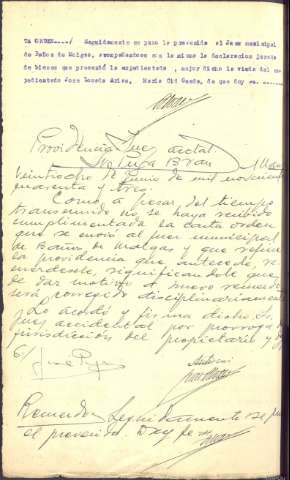 TA ORDEN.- Seguidamente se pasa la prevenida al Juez municipal
de Baños de Molgas, acompañandose a la misma la declaracion jurada
de bienes que presentó la expedientada, mejor dicho la viuda del ex-
pedientado Jose Losada Ariza, Maria Cid Conde, de que doy fe.
Providencia Juez acctal.
Sr Puga Bran Allariz
veintiocho de Junio de mil novecientos
cuarenta y tres.
Como a pesar del tiempo
transcurrido no se haya recibido
cumplimentada la carta orden
que se envió al Juez municipal
de Baños de Molgas y que refiere
la providencia que antecede, re-
mordesele, significandole que
de dar motivo a nuevo recuerdo
será corregido disciplinariamente
Lo acordó y firma dicho Sr.
Juez accidental por prorroga
jurisdicción del propietario y
Jose Puga
Antemi
Recuerdo Seguidamente se
el prevenido. Doy fe